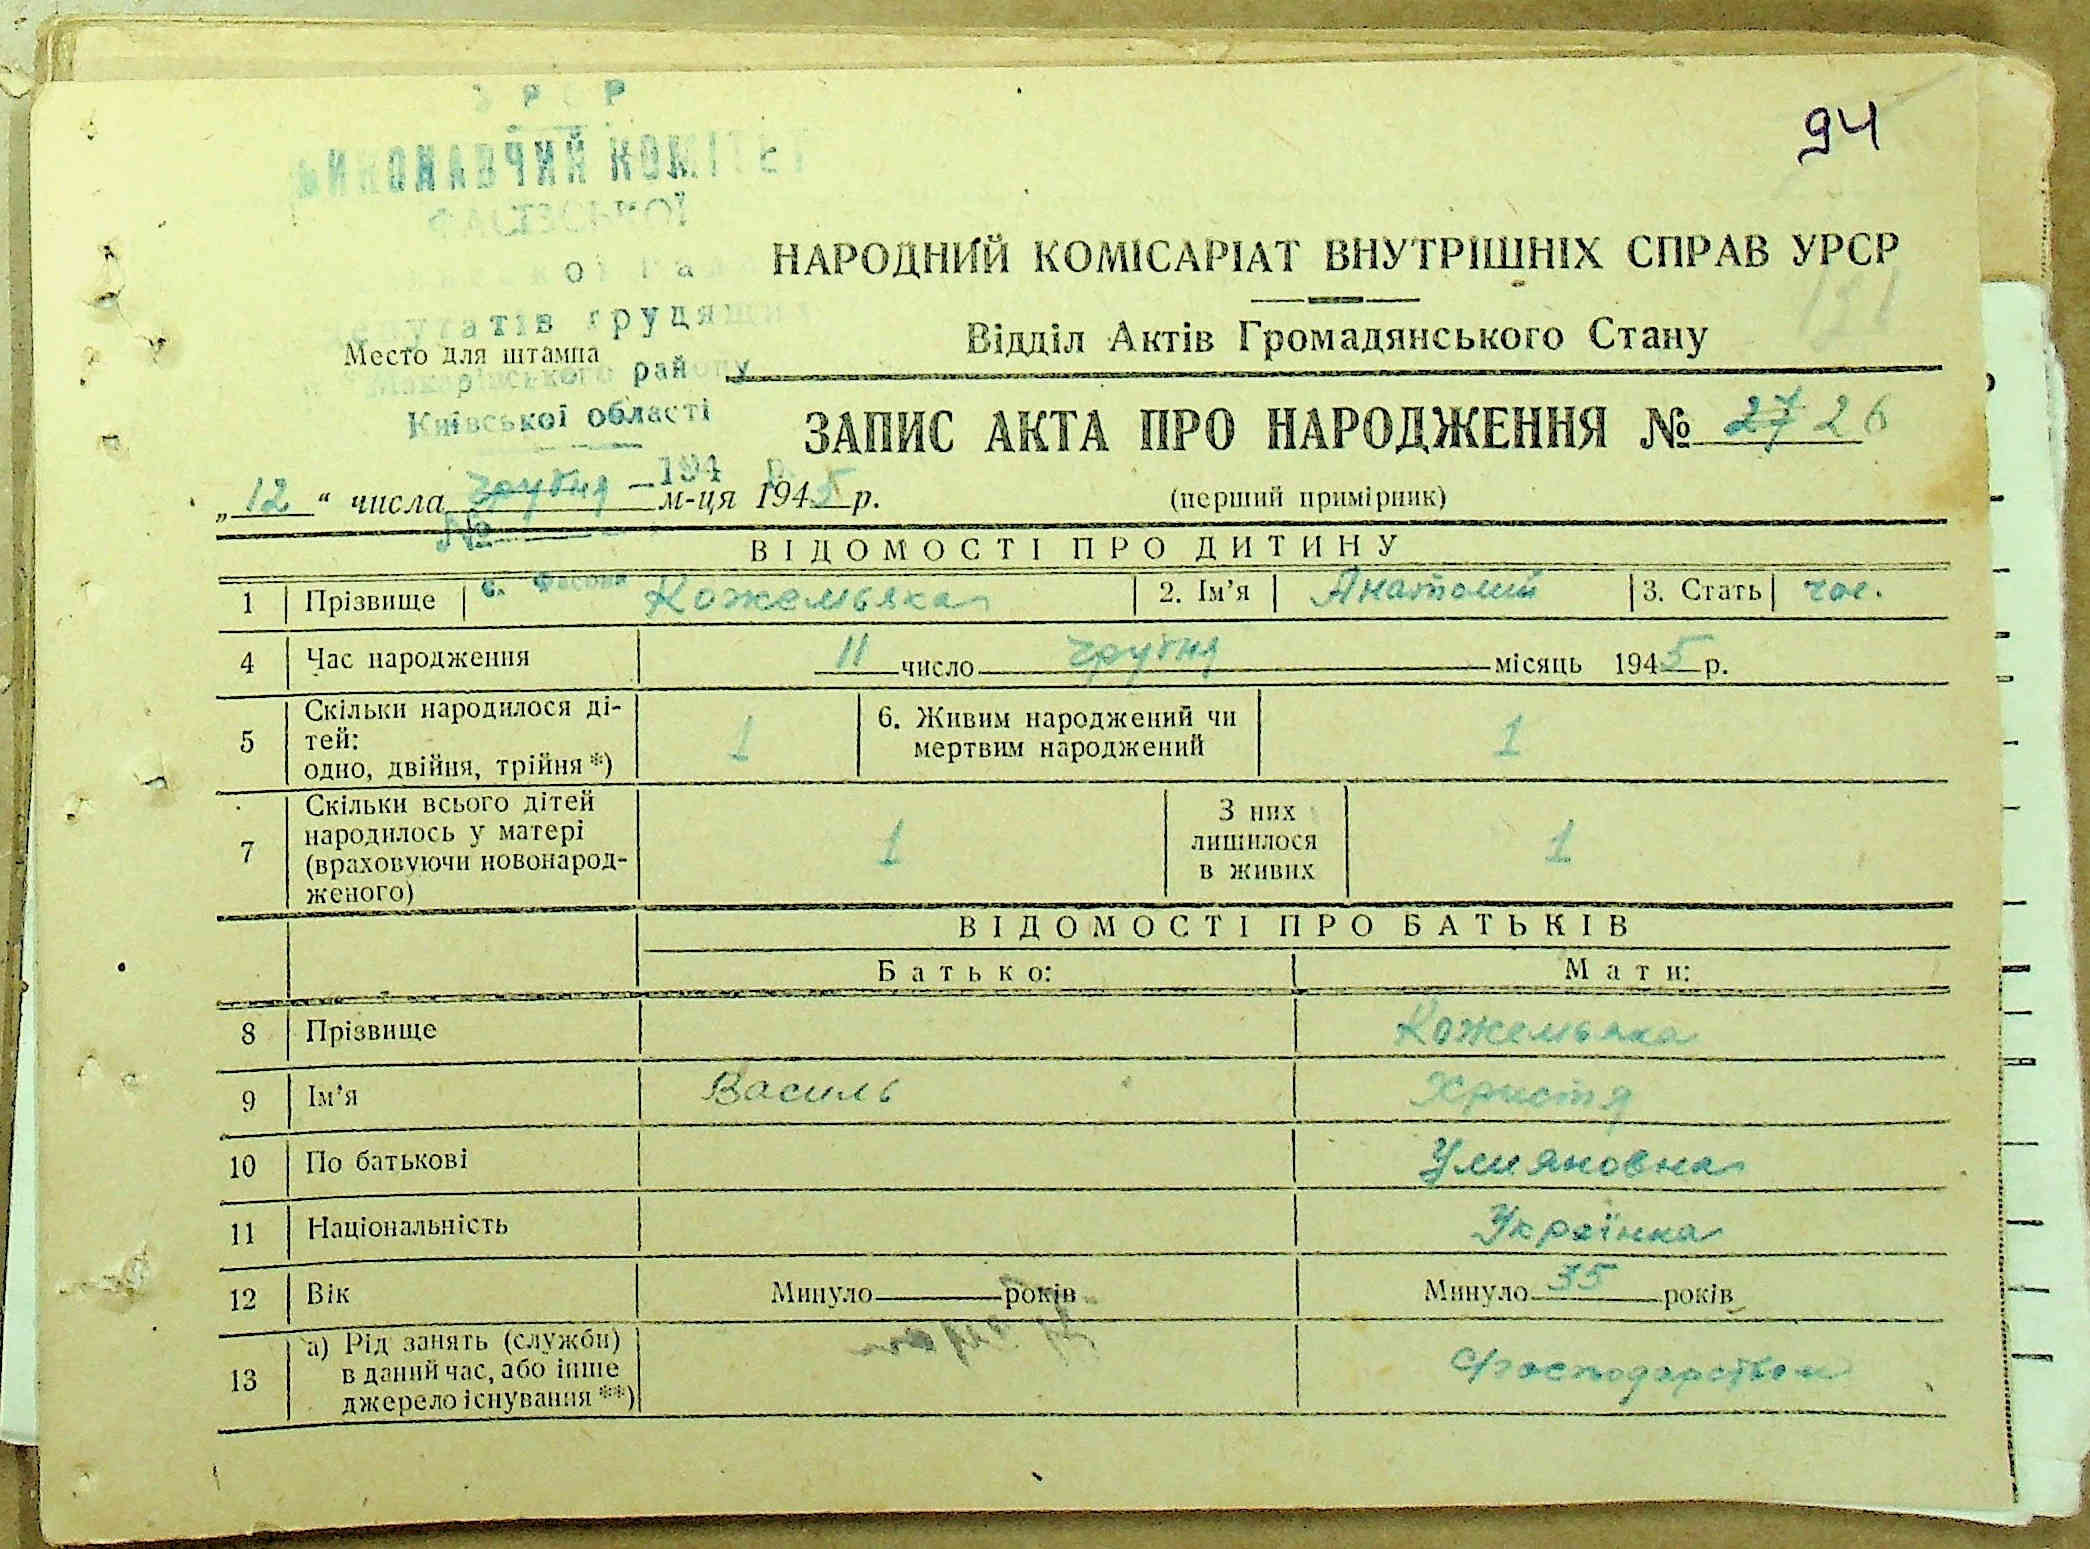 94
У Р С Р
ВИКОНАВЧИЙ КОМІТЕТ
ФАСІВСЬКОЇ
депутатів трудящих
Макарівського району
Київської області
194 р.
№
с. Фасова
Место для штампа
НАРОДНИЙ КОМІСАРІАТ ВНУТРІШНІХ СПРАВ УРСР
Відділ Актів Громадянського Стану
ЗАПИС АКТА ПРО НАРОДЖЕННЯ № 27 26
„12“ числа грудня м-ця 1945 р.
(перший примірник)
ВІДОМОСТІ ПРО ДИТИНУ
1 Прізвище Кожемьяка 2. Ім’я Анатолий 3. Стать чол.
4 Час народження 11 число грудня місяць 1945 р.
5 Скільки народилося ді-
тей:
одно, двійня, трійня *) 1
6. Живим народжений чи
мертвим народжений 1
7 Скільки всього дітей
народилось у матері
(враховуючи новонарод-
женого) 1
З них
лишилося
в живих 1
ВІДОМОСТІ ПРО БАТЬКІВ
Батько: Мати:
8 Прізвище Кожемьяка
9 Ім’я Василь Христя
10 По батькові Улияновна
11 Національність Українка
12 Вік Минуло років Минуло 35 років
13 а) Рід занять (служби)
в даний час, або інше
джерело існування **)